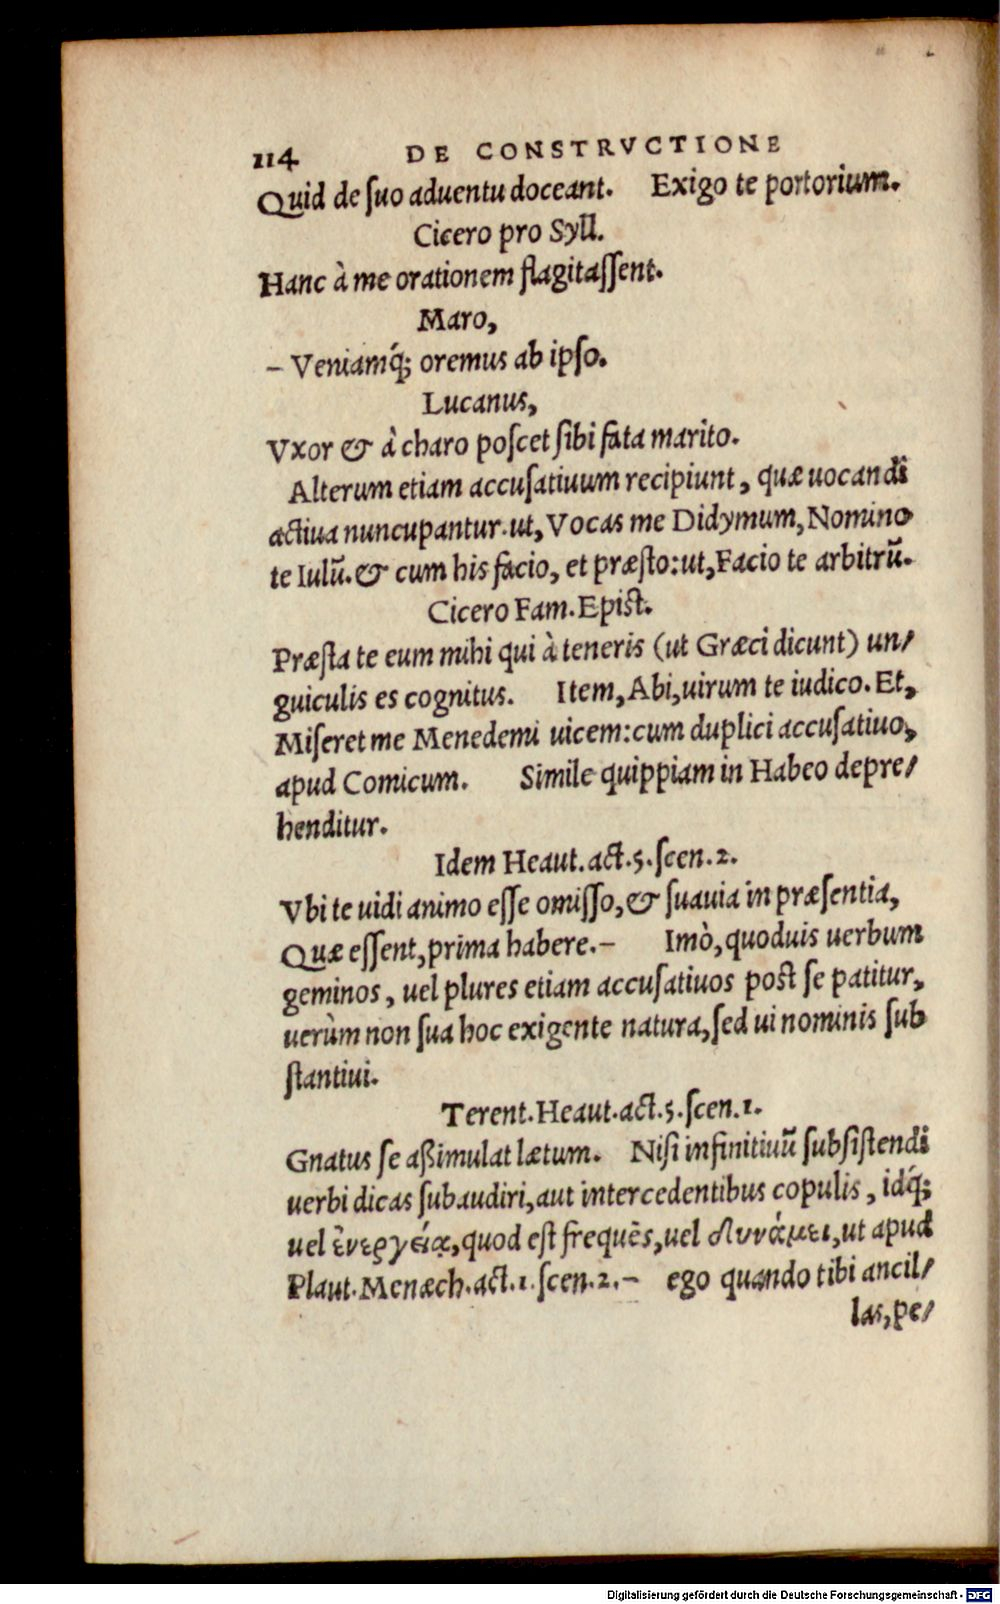 114 DE CONSTRVCTIONE
Quid de ſuo aduentu doceant. Exigo te portorium.
Cicero pro Syll.
Hanc à me orationem flagitaſſent.
Maro,
– Veniamq́; oremus ab ipſo.
Lucanus,
Vxor & à charo poſcet ſibi fata marito.
Alterum etiam accuſatiuum recipiunt, quæ uocandi
actiua nuncupantur. ut, Vocas me Didymum, Nomino
te Iulũ. & cum his facio, et præſto: ut, Facio te arbitrũ.
Cicero Fam. Epiſt.
Præſta te eum mihi qui à teneris (ut Græci dicunt) un/
guiculis es cognitus. Item, Abi, uirum te iudico. Et,
Miſeret me Menedemi uicem: cum duplici accuſatiuo,
apud Comicum. Simile quippiam in Habeo depre/
henditur.
Idem Heaut. act. 5. ſcen. 2.
Vbi te uidi animo eſſe omiſſo, & ſuauia in præſentia,
Quæ eſſent, prima habere. – Imò, quoduis uerbum
geminos, uel plures etiam accuſatiuos poſt ſe patitur,
uerùm non ſua hoc exigente natura, ſed ui nominis ſub
ſtantiui.
Terent. Heaut. act. 5. ſcen. 1.
Gnatus ſe aßimulat lætum. Niſi infinitiuũ ſubſiſtendi
uerbi dicas ſubaudiri, aut intercedentibus copulis, idq́;
uel ἐνεργείᾳ, quod eſt frequẽs, uel δυνάμει, ut apud
Plaut. Menæch. act. 1. ſcen. 2. – ego quando tibi ancil/
las, pe/
Digitalisierung gefördert durch die Deutsche Forschungsgemeinschaft - DFG